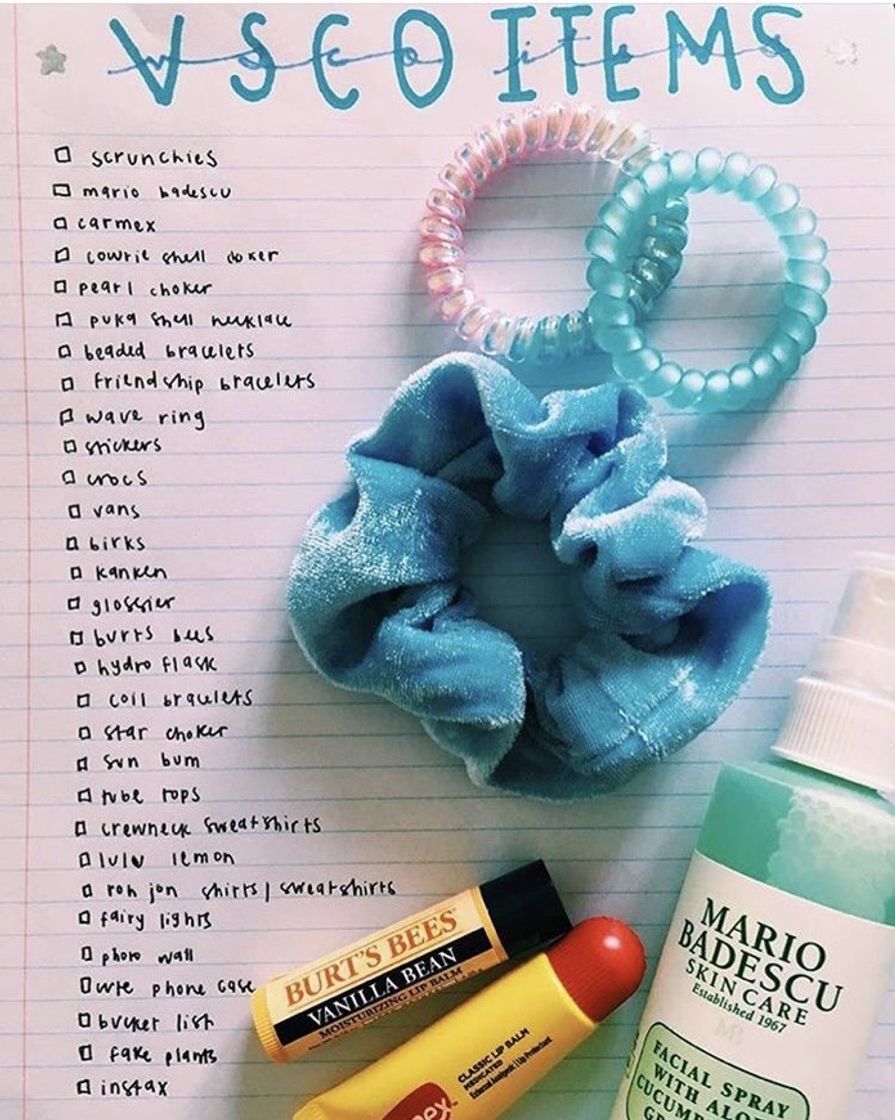 VSCO ITEMS
vsco items
scrunchies
mario badescu
carmex
cowrie shell coker
pearl choker
puka shell necklace
beaded bracelets
friendship bracelets
wave ring
stickers
crocs
vans
birks
kanken
glossier
burts bees
hydro flask
coil bracelets
star choker
sun bum
tube tops
crewneck sweatshirts
lulu lemon
ron jon shirts / sweatshirts
fairy lights
photo wall
cute phone case
bucket list
fake plants
instax
BURT'S BEES
VANILLA BEAN
MOISTURIZING LIP BALM
CLASSIC LIP BALM
MEDICATED
External Analgesic | Lip Protectant
mex
MARIO
BADESCU
SKIN CARE
Established 1967
FACIAL SPRAY
WITH ALO
CUCUM
GR